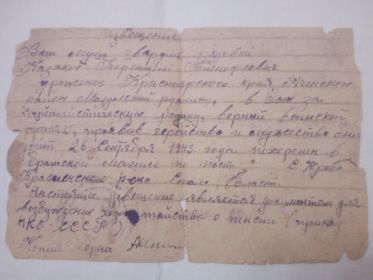 Извещение
Ваш муж гвардии рядовой
Казаков Терентий
уроженец Красноярского края Ачинского
район рудника, в бою за
социалистическую родину, верный воинской
присяге, проявив геройство и мужество был
убит 20 Сентября 1943 года похоронен в
братской могиле
р-она Смол. Област.
Настояще извещение является документом для
возбуждения ходатайства о пенсии (приказ
НКО СССР)
Копия верна